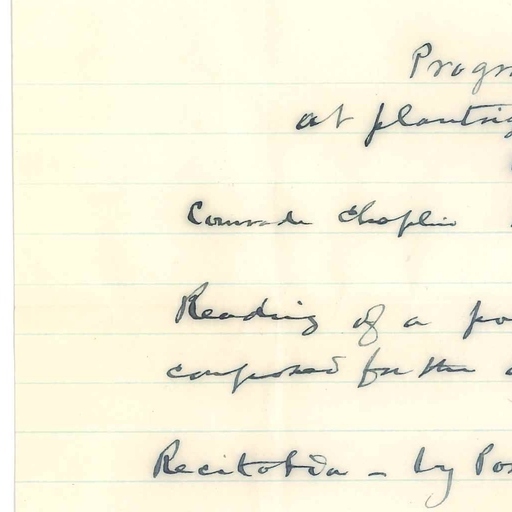 Progr
at planting
Comrade Chaplin
Reading of a po
composed for the
Recitation - by Pos